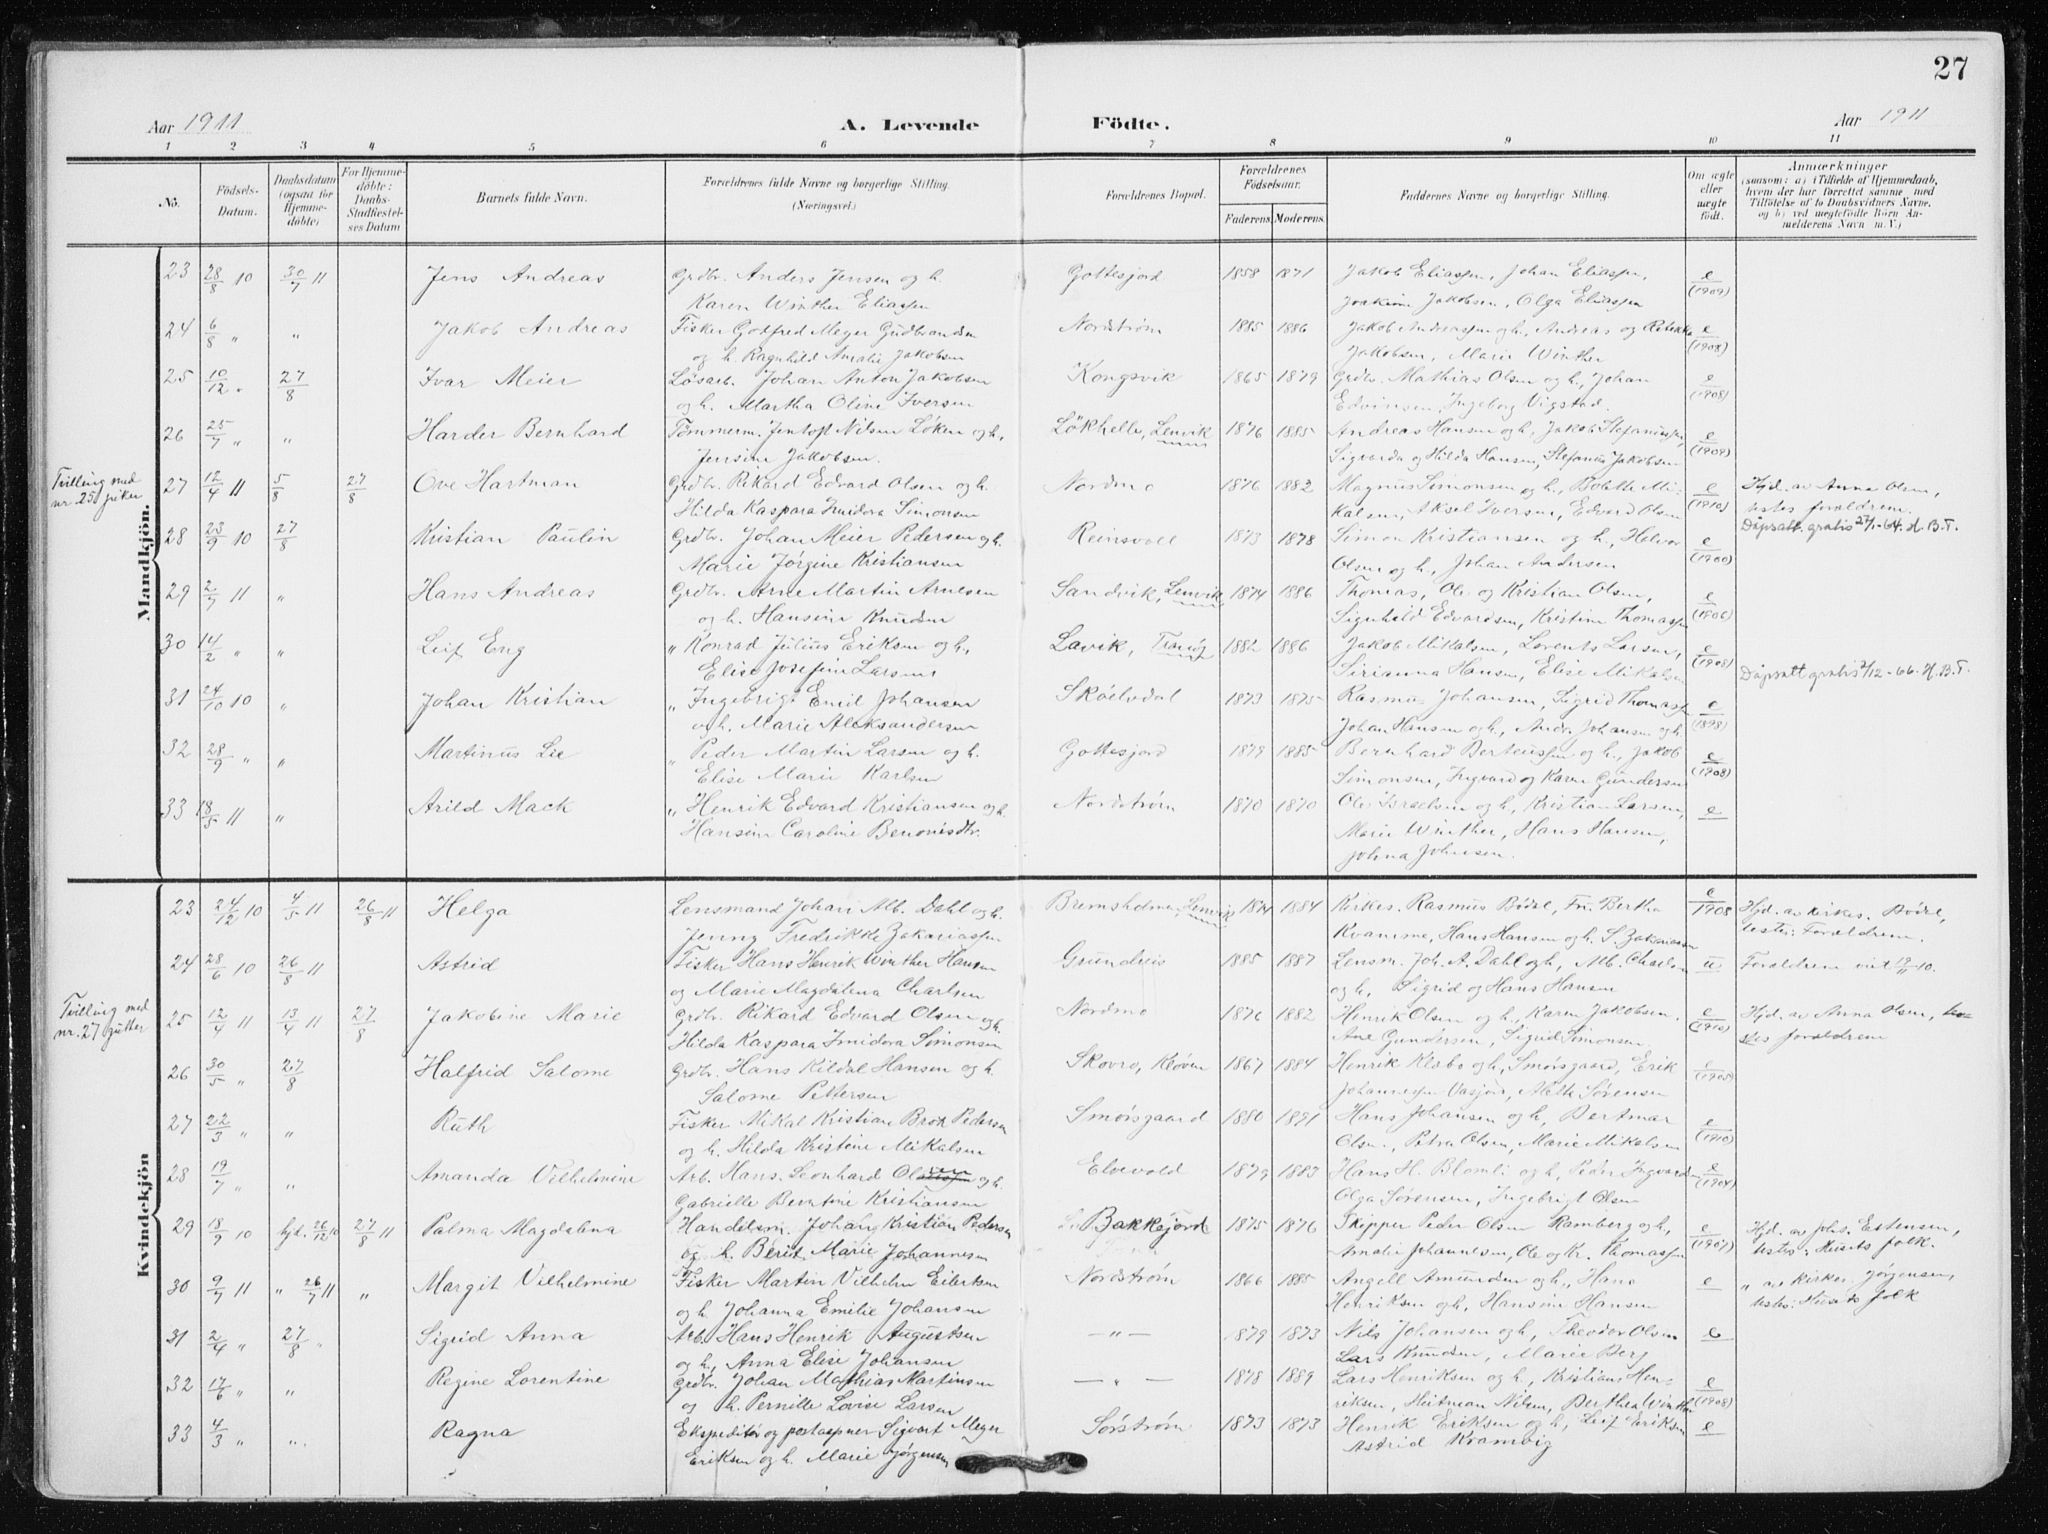 27
Aar 1911
A. Levende Födte.
Aar 1911
1 2 3 4 5 6 7 8 9 10 11
No.
Födsels-Datum.
Daabsdatum (ogsaa for Hjemme-döbte)
For Hjemme-döbte: Daabs-Stadfæstel-ses Datum
Barnets fulde Navn.
Forældrenes fulde Navne og borgerlige Stilling. (Næringsvei.)
Forældrenes Bopæl.
Forældrenes Födselsaar.
Faderens. Moderens.
Faddernes Navne og borgerlige Stilling.
Om ægte eller uægte födt.
Anmærkninger
(saasom: a) i Tilfælde af Hjemmedaab, hvem der har forrettet samme, med Tilföielse af to Daabsvidners Navne, og b) ved uegtefödte Börn An-melderens Navn m. V.)
Mandkjön.
23 28/8 10 30/7 11 Jens Andreas Grdbr. Anders Jensen og h. Gottesjord 1858 1871 Jakob Eliassen, Johan Eliassen, e
Karen Winther Eliassen Joakim Jakobsen, Olga Eliassen (1909)
24 6/8 " " Jakob Andreas Fisker Godfred Meyer Gudbrandsen Nordstrøm 1885 1886 Jakob Andreassen og h., Andreas og Rebekka e
og h. Ragnhild Amalie Jakobsen Jakobsen, Marie Winther (1908)
25 10/12 " 27/8 Ivar Meier Løsarb. Johan Anton Jakobsen Kongsvik 1865 1879 Grdbr. Mathias Olsen og h., Johan e
og h. Martha Oline Iversen Edvinsen, Ingeborg Vigstad. (1908)
26 25/7 " " Harder Bernhard Tømmerm. Jentoft Nilsen Løken og h., Lökhelle, Lenvik 1876 1885 Andreas Hansen og h., Jakob Stefanussen, e
Jensine Jakobsen. Sigvarda og Hilda Hansen, Stefanus Jakobsen (1909)
Tvilling med nr. 25 piker
27 12/4 11 5/8 27/8 Ove Hartman Grdbr. Rikard Edvard Olsen og h. Nordmo 1876 1882 Magnus Simonsen og h., Bolette Mi- e Hjd. av Anna Olsen,
Hilda Kaspara Imidora Simonsen kalsen, Aksel Iversen, Edvard Olsen (1910) testes forældrene.
28 23/9 10 27/8 Kristian Paulin Grdbr. Johan Meier Pedersen og h. Reinsvoll 1873 1878 Simon Kristiansen og h., Halvor e Dåpsatt. gratis 27/1-64. H.B.T.
Marie Jørgine Kristiansen Olsen og h., Johan Andersen (1900)
29 2/7 11 " Hans Andreas Grdbr. Arne Martin Arnesen Sandvik, Lenvik 1874 1886 Thomas, Ole og Kristian Olsen, e
og h. Hansine Knudsen Signhild Edvardsen, Kristine Thomassen (1906)
30 14/2 " " Leif Eng " Konrad Julius Eriksen og h., Lavik, Tranøy 1882 1886 Jakob Mikalsen, Lorents Larsen, e
Elise Josefine Larsens Sirianna Hansen, Elise Mikalsen (1908) Dåpsatt gratis 2/12-66. H.B.T.
31 24/10 10 " Johan Kristian " Ingebrigt Emil Johansen Skøelvdal 1873 1875 Rasmus Johansen, Sigrid Thomassen e
og h. Marie Aleksandersen Johan Hansen og h., Anders Johansen og h. (1898)
32 28/9 " " Martinus Lie " Peder Martin Larsen og h. Gottesjord 1879 1885 Bernhard Berteussen og h., Jakob e
Elise Marie Karlsen Simonsen, Ingvard og Karen Gundersen (1908)
33 18/5 11 " Arild Mack " Henrik Edvard Kristiansen og h. Nordstrøm 1870 1870 Ole Israelsen og h., Kristian Larsen, e
Hansine Caroline Benonisdtr. Marie Winther, Hans Hansen,
Johna Johnsen.
Kvindekjön
23 24/12 10 4/5 11 26/8 11 Helga Lensmand Johan Alb. Dahl og h. Bremsholmen, Lenvik 1874 1884 Kirkes. Rasmus Bödal, Frk. Bertha e/1908 Hjd. av kirkes. Bödal,
Jenny Fredrikke Zakariassen Kvamme, Hans Hansen og h. S. Zakariassen testes: Forældrene.
24 28/6 10 26/8 11 Astrid Fisker Hans Henrik Winther Hansen Grundvis 1885 1887 Lensm. Joh. A. Dahl og h., Alb. Charlsen u Forældrene viet 19/11 10.
og Marie Magdalena Charlsen og h., Sigrid og Hans Hansen
Tvilling med nr. 27 gutter
25 12/4 11 13/4 11 27/8 Jakobine Marie Grdbr. Rikard Edvard Olsen Nordmo 1876 1882 Henrik Olsen og h., Karen Jakobsen, e Hjd. av Anna Olsen, te-
og h. Hilda Kaspara Imidora Simonsen Ane Gundersen, Sigrid Simonsen (1910) stes forældrene
26 30/5 " 27/8 Halfrid Salome Grdbr. Hans Kildal Hansen og h. Skovro, Kløven 1867 1884 Henrik Klæbo og h., Smørsgaard, Erik e
Salome Pettersen Johannessen Vasjord, Alette Sørensen (1905)
27 22/3 " " Ruth Fisker Mikal Kristian Brox Pedersen Smørsgaard 1880 1891 Hans Johansen og h., Bertmar e
og h. Hilda Kristine Mikalsen Olsen, Petra Olsen, Marie Mikalsen (1910)
28 19/7 " " Amanda Vilhelmine Arb. Hans Leonhard Olsen og h. Elvevold 1879 1883 Hans H. Blomli og h., Peder Ingvardsen e
Gabrielle Berntine Kristiansen Olga Sørensen, Ingebrigt Olsen (1904)
29 18/9 10 hjd. 26/12 10 27/8 11 Palma Magdalena Handelsm. Johan Kristian Pedersen Bakkejord 1875 1876 Skipper Peder Olsen Ramberg og h., e Hjd. av Johs. Estensen,
og h. Berit Marie Johannesen Amalie Johannesen, Ole og Kr. Thomassen (1907) testes: Husets folk.
30 9/7 11 " 26/7 11 " Margit Vilhelmine Fisker Martin Vilhelm Eilertsen Nordstrøm 1866 1885 Angell Amundsen og h., Hans e " av kirkes. Jørgensen,
og h. Johanna Emilie Johansen Henriksen og h., Hansine Hansen testes: Husets folk
31 2/4 " 27/8 " Sigrid Anna Arb. Hans Henrik Augustsen —"— 1879 1873 Nils Johansen og h., Theodor Olsen e
og h. Anna Elise Johansen Lars Knudsen, Marie Berg
32 17/6 " " Regine Lorentine Grdbr. Johan Mathias Martinsen —"— 1878 1889 Lars Henriksen og h., Kristians Hen- e
og h. Pernille Lovise Larsen riksen, Hartman Nilsen, Berthea Winther (1908)
33 4/3 " " Ragna Ekspeditør og postaapner Sigvart Meyer Sørstrøm 1873 1873 Henrik Eriksen og h., Leif Eriksen e
Eriksen og h. Marie Jørgensen Astrid Kramvig